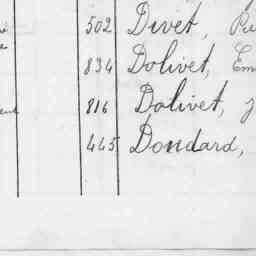 502 Divet,
834 Dolivet, Em
816 Dolivet,
445 Dondard,